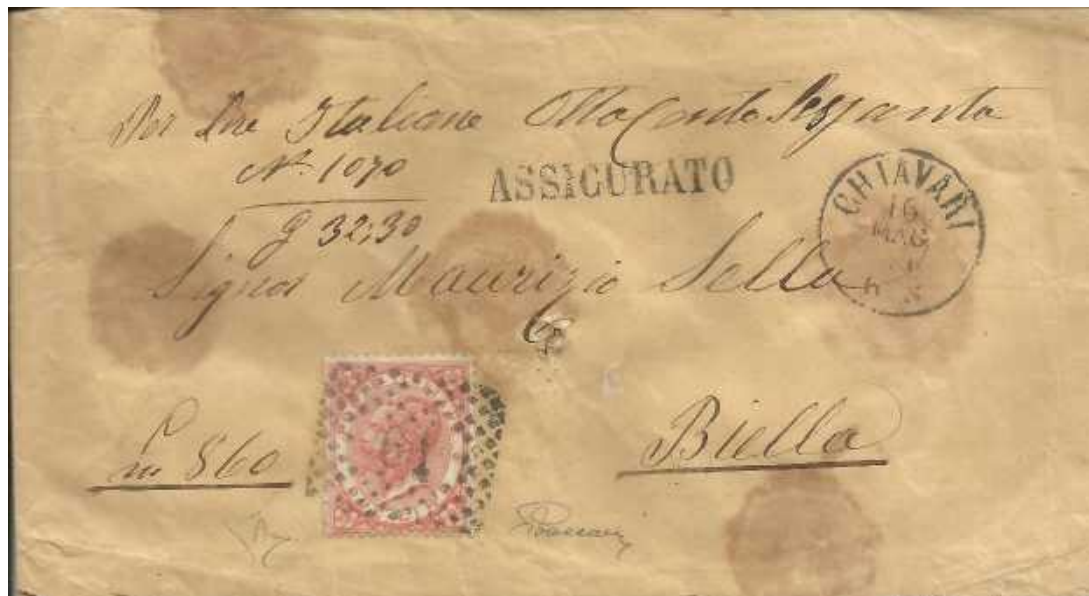 Per Lire Italiane Ottocento Sessanta
N. 1070
ASSICURATO
CHIAVARI
16
MAG
g 32,30
Signor Maurizio Sella
Biella
860